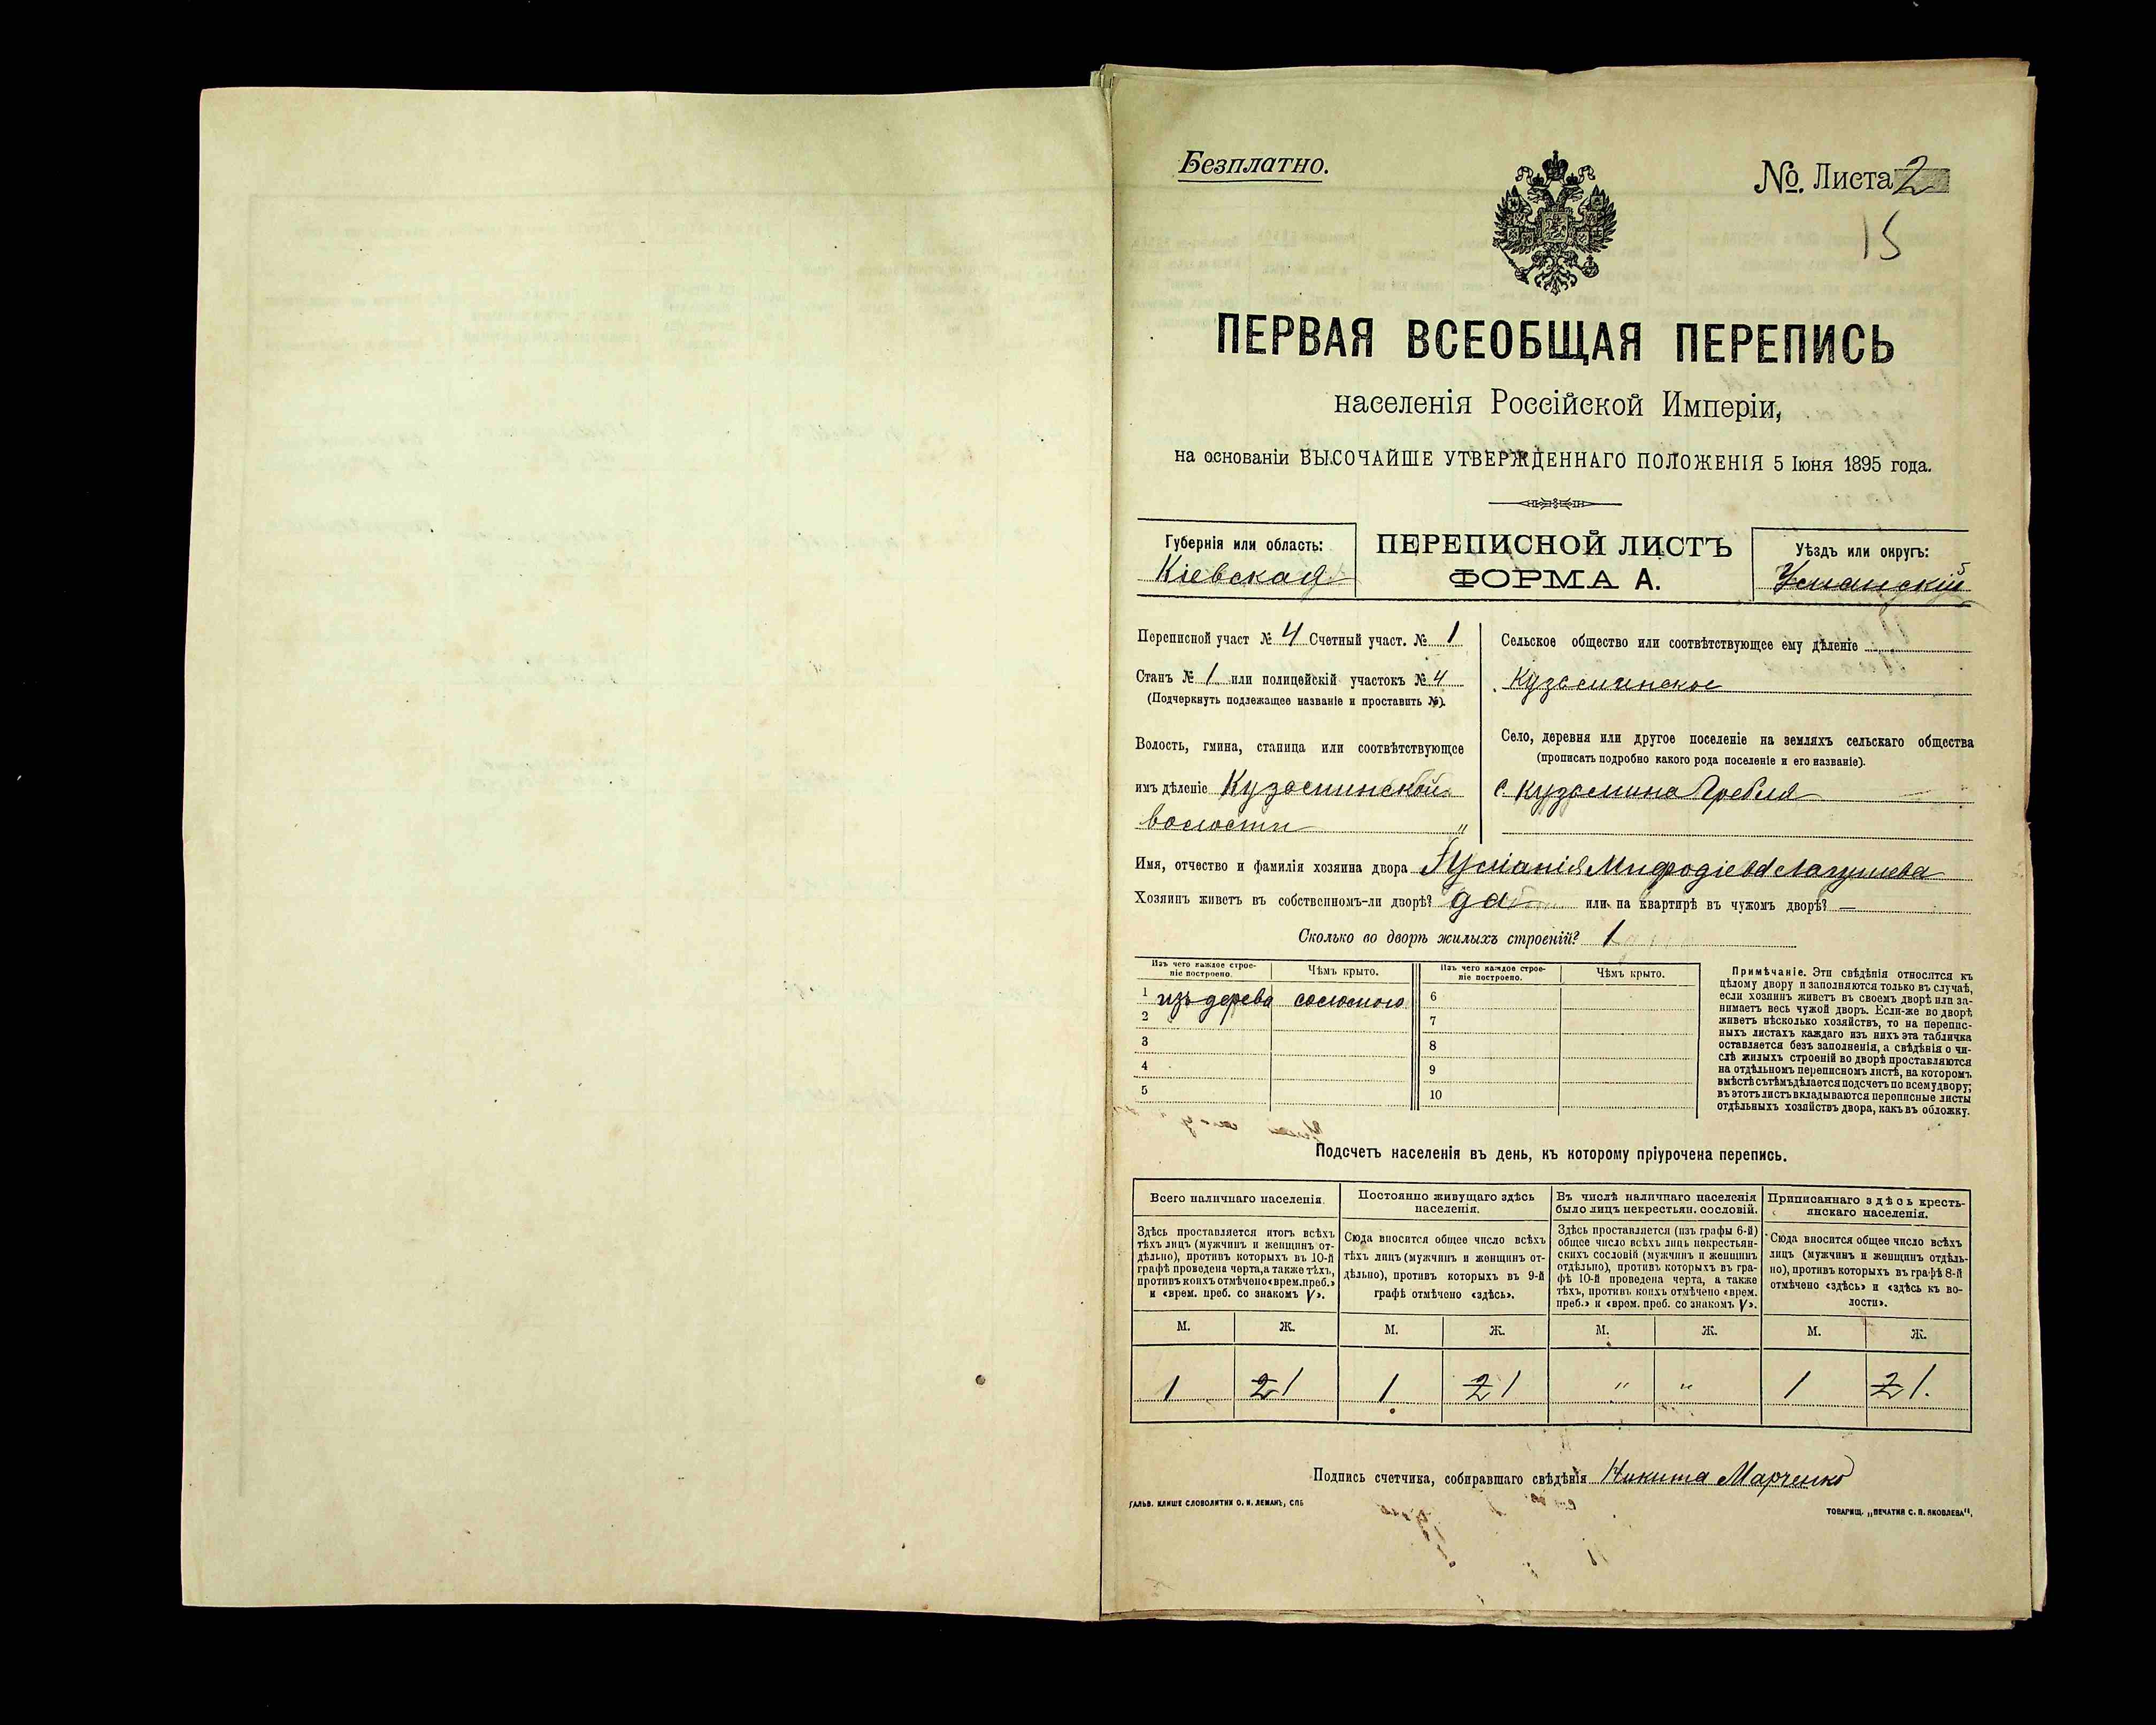 Безплатно.
№. Листа 2
15
ПЕРВАЯ ВСЕОБЩАЯ ПЕРЕПИСЬ
населенія Россійской Имперіи,
на основаніи ВЫСОЧАЙШЕ УТВЕРЖДЕННАГО ПОЛОЖЕНІЯ 5 Іюня 1895 года.
Губернія или область:
Кіевская
ПЕРЕПИСНОЙ ЛИСТЪ
ФОРМА А.
Уѣздъ или округъ:
Уманскій
Переписной участ № 4 Счетный участ. № 1
Станъ № 1 или полицейскій участокъ № 4
(Подчеркнуть подлежащее названіе и проставить №).
Волость, гмина, станица или соотвѣтствующее
имъ дѣленіе Кузьминской
волости "
Сельское общество или соотвѣтствующее ему дѣленіе
Кузьминское
Село, деревня или другое поселеніе на земляхъ сельскаго общества
(прописать подробно какого рода поселеніе и его названіе).
с. Кузьмина Гребля
Имя, отчество и фамилія хозяина двора Мифодіева
Хозяинъ живетъ въ собственномъ-ли дворѣ? да или на квартирѣ въ чужомъ дворѣ? —
Сколько во дворѣ жилыхъ строеній? 1
Изъ чего каждое строе-
ніе построено.
Чѣмъ крыто.
Изъ чего каждое строе-
ніе построено.
Чѣмъ крыто.
1 изъ дерева соломою 6
2 7
3 8
4 9
5 10
Примѣчаніе. Эти свѣдѣнія относятся къ
цѣлому двору и заполняются только въ случаѣ,
если хозяинъ живетъ въ своемъ дворѣ или за-
нимаетъ весь чужой дворъ. Если-же во дворѣ
живетъ нѣсколько хозяйствъ, то на перепис-
ныхъ листахъ каждаго изъ нихъ эта табличка
оставляется безъ заполненія, а свѣдѣнія о чи-
слѣ жилыхъ строеній во дворѣ проставляются
на отдѣльномъ переписномъ листѣ, на которомъ
вмѣстѣ съ тѣмъ дѣлается подсчетъ по всему двору;
въ этотъ листъ вкладываются переписные листы
отдѣльныхъ хозяйствъ двора, какъ въ обложку.
Подсчетъ населенія въ день, къ которому пріурочена перепись.
Всего наличнаго населенія.
Здѣсь проставляется итогъ всѣхъ
тѣхъ лицъ (мужчинъ и женщинъ от-
дѣльно), противъ которыхъ въ 10-й
графѣ проведена черта, а также тѣхъ,
противъ коихъ отмѣчено «врем. преб.»
и «врем. преб. со знакомъ V».
Постоянно живущаго здѣсь
населенія.
Сюда вносится общее число всѣхъ
тѣхъ лицъ (мужчинъ и женщинъ от-
дѣльно), противъ которыхъ въ 9-й
графѣ отмѣчено «здѣсь».
Въ числѣ наличнаго населенія
было лицъ некрестьян. сословій.
Здѣсь проставляется (изъ графы 6-й)
общее число всѣхъ лицъ некрестьян-
скихъ сословій (мужчинъ и женщинъ
отдѣльно), противъ которыхъ въ гра-
фѣ 10-й проведена черта, а также
тѣхъ, противъ коихъ отмѣчено «врем.
преб.» и «врем. преб. со знакомъ V».
Приписаннаго здѣсь кресть-
янскаго населенія.
Сюда вносится общее число всѣхъ
лицъ (мужчинъ и женщинъ отдѣль-
но), противъ которыхъ въ графѣ 8-й
отмѣчено «здѣсь» и «здѣсь къ во-
лости».
М. Ж. М. Ж. М. Ж. М. Ж.
1 2 1 1 2 1 " " 1 2 1.
Подпись счетчика, собиравшаго свѣдѣнія Никита Марченко
ГАЛЬВ. КЛИШЕ СЛОВОЛИТНИ О. И. ЛЕМАНЪ, СПБ
ТОВАРИЩ. „ПЕЧАТНЯ С. П. ЯКОВЛЕВА".